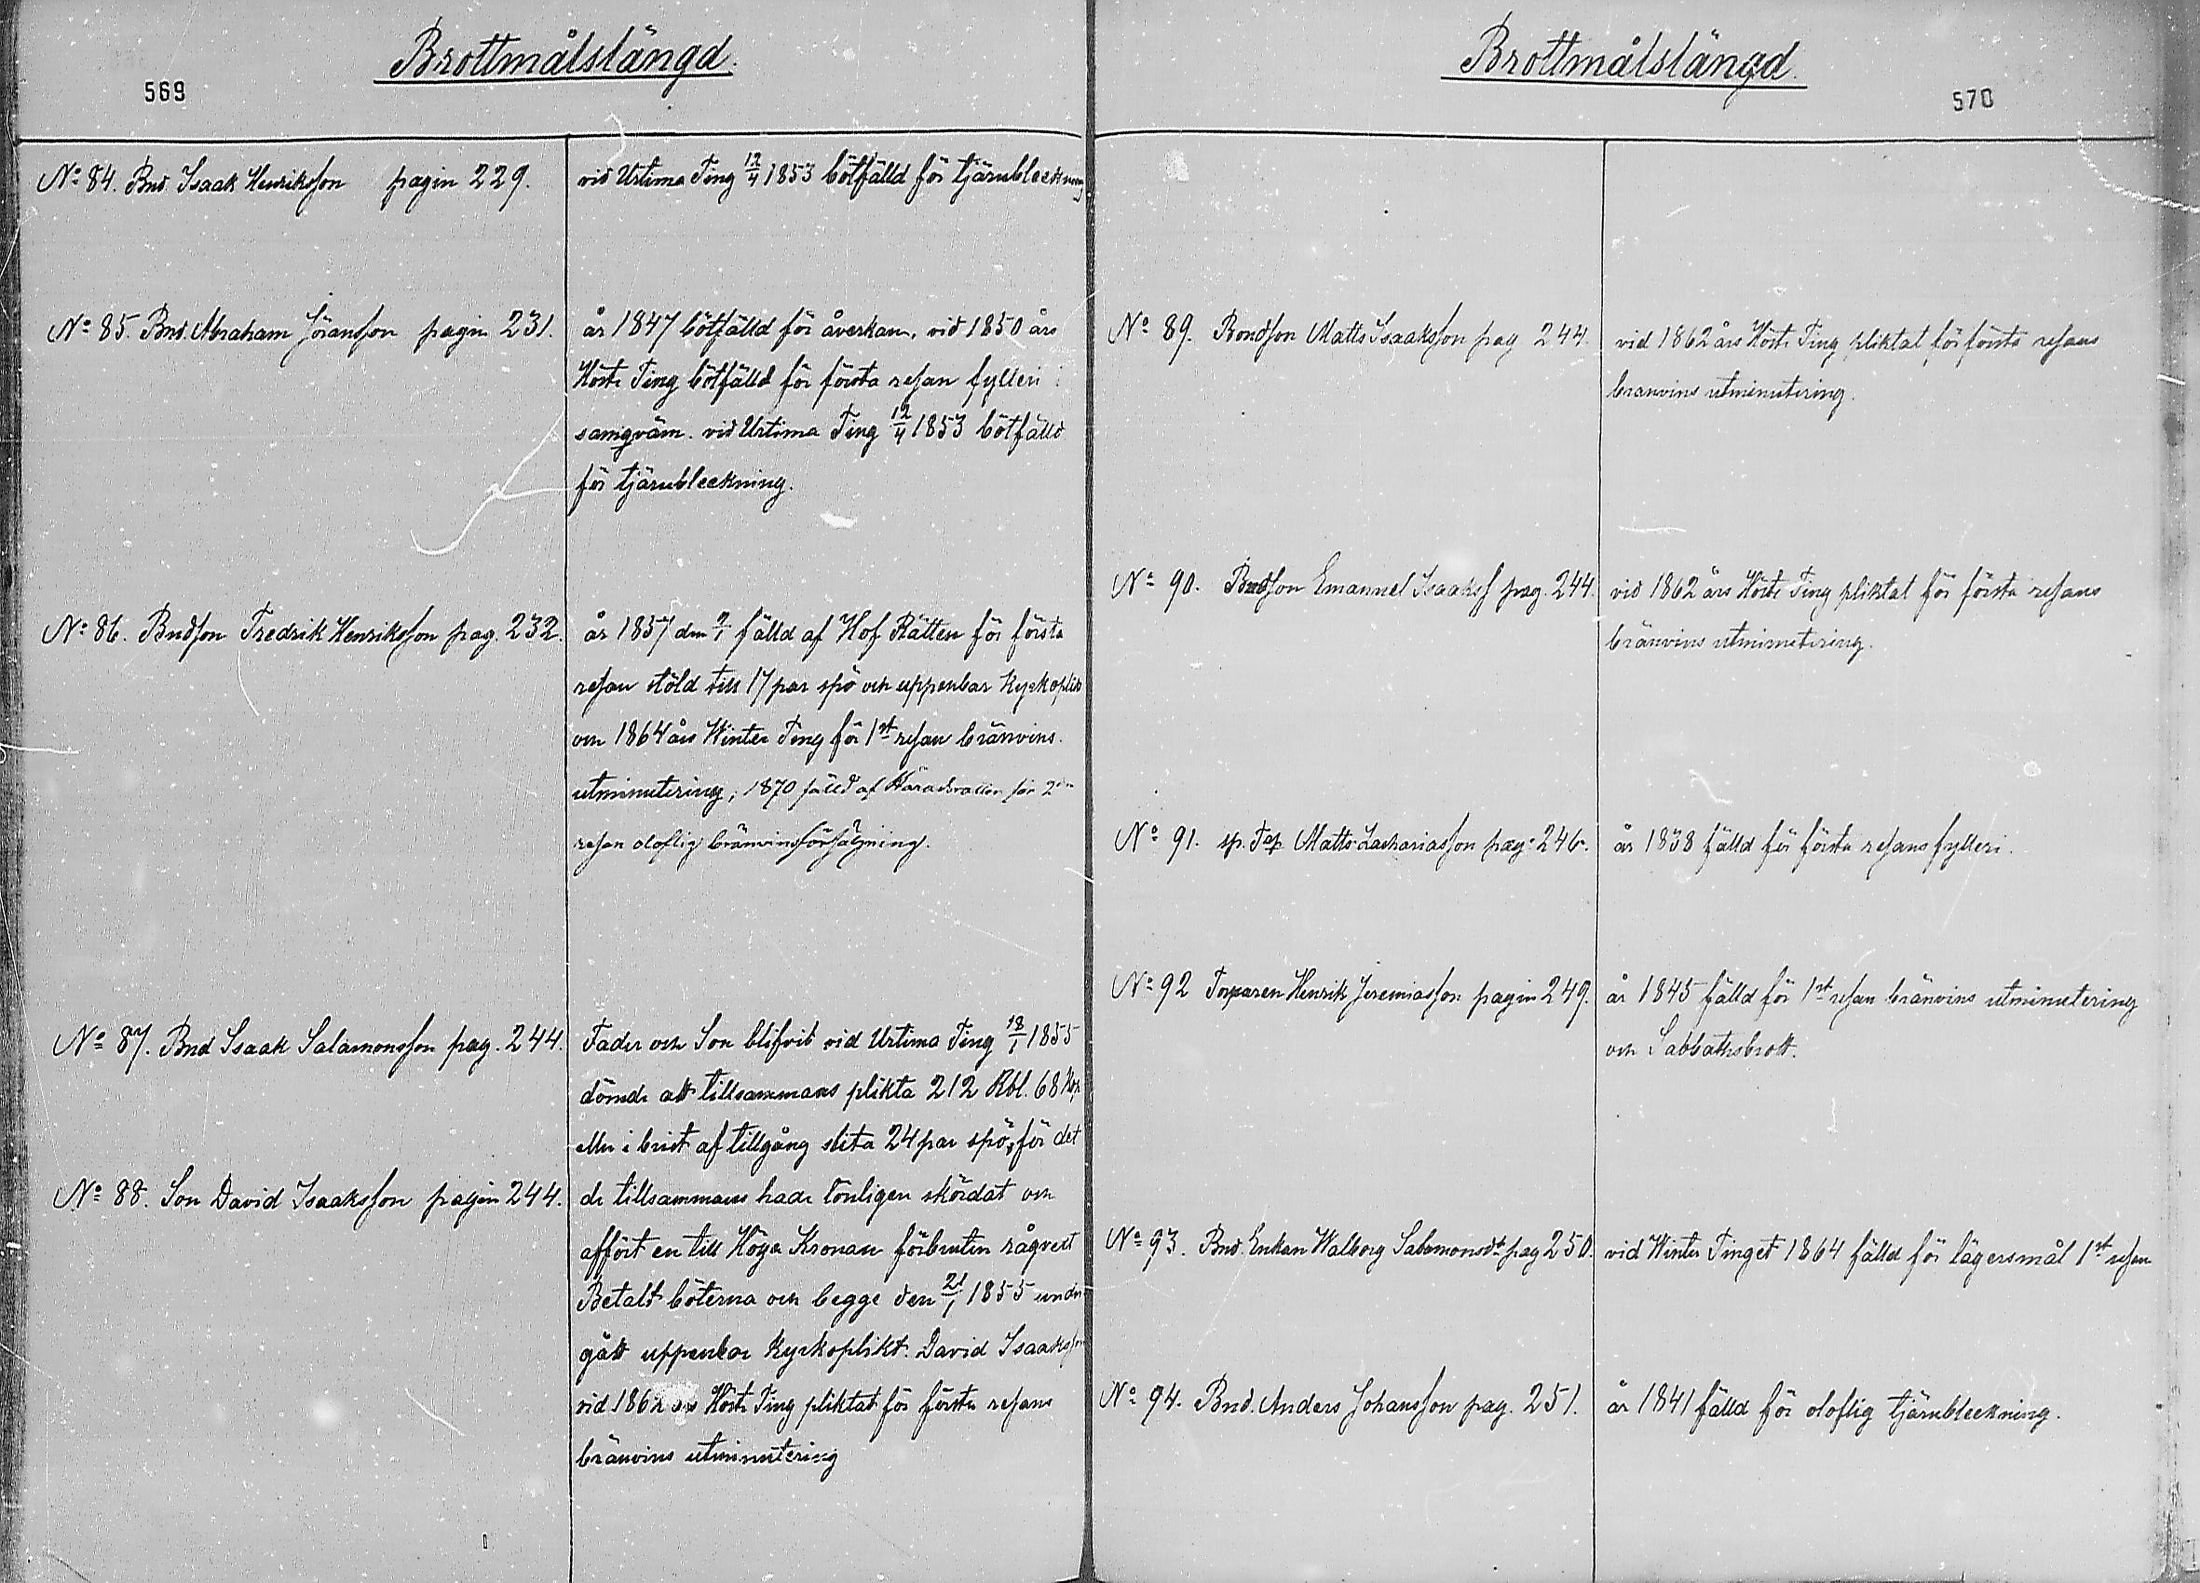 Brottmålslängd.
569
No 84. Bnd. Isaak Henriksson pagin 229.
vid Urtima Ting 12/4 1853 bötfälld för tjärubleckning
No 85. Bnd. Abraham Jöransson pagin 231.
år 1847 bötfälld för åverkan, vid 1850 års
Höste Ting bötfälld för första resan fylleri i
samqväm. vid Urtima Ting 12/4 1853 bötfälld
för tjärubleckning.
No 86. Bndson Fredrik Henriksson pag. 232.
år 1857 den 9/1 fälld af Hof Rätten för första
resan stöld till 17 par spö och uppenbar Kyrkoplikt
och 1864 års Winter Ting för 1sta resan bränvins
utminutering; 1870 fälld af Häradsrätten för 2dra
resan oloflig bränvinsförsäljning.
No 87. Bnd Isaak Salamonsson pag. 244.
Fader och Son blifvit vid Urtima Ting 18/1 1855
dömde att tillsammans plikta 212 Rbl. 68 Kop
eller i brist af tillgång slita 24 par spö, för det
No 88. Son David Isaaksson pagin 244.
de tillsammans hade lönligen skördat och
affört en till Höga Kronan förbruten rågvext
Betalt böterna och begge den 21/1 1855 under
gått uppenbar Kyrkoplikt. David Isaaksson
vid 1862 års Höste Ting pliktat för första resans
bränvins utminutering
Brottmålslängd.
570
No 89. Bondson Matts Isaaksson pag 244.
vid 1862 års Höste Ting pliktat för första resans
bränvins utminutering.
No 90. Bndson Emanuel Isaakss pag. 244.
vid 1862 års Höste Ting pliktat för första resans
bränvins utminutering.
No 91. sp. Tap Matts Zachariasson pag. 246.
år 1838 fälld för första resans fylleri.
No 92 Torparen Henrik Jeremiasson pagin 249.
år 1845 fälld för 1sta resan bränvins utminutering
och Sabbathsbrott.
No 93. Bnd. Enkan Walborg Salomonsdr pag 250.
vid Winter Tinget 1864 fälld för lägersmål 1sta resan
No 94. Bnd. Anders Johansson pag. 251.
år 1841 fälld för oloflig tjärubleckning.